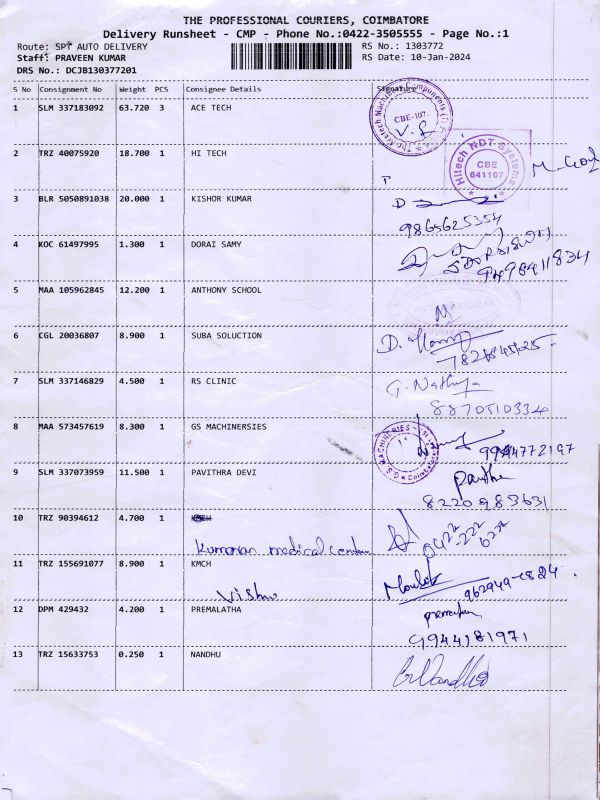 THE PROFESSIONAL COURIERS, COIMBATORE
Delivery Runsheet - CMP - Phone No.:0422-3505555 - Page No.:1
Route: SPT AUTO DELIVERY
RS No.: 1303772
Staff: PRAVEEN KUMAR
RS Date: 10-Jan-2024
DRS No.: DCJB130377201
S No Consignment No Weight PCS Consignee Details Signature
1 SLM 337183092 63.720 3 ACE TECH
CBE-107.
2 TRZ 40075920 18.700 1 HI TECH
Hitech NDT Systems
CBE
641107
3 BLR 5050891038 20.000 1 KISHOR KUMAR
9865625354
4 KOC 61497995 1.300 1 DORAI SAMY
9498411834
5 MAA 105962845 12.200 1 ANTHONY SCHOOL
6 CGL 20036807 8.900 1 SUBA SOLUCTION
7 SLM 337146829 4.500 1 RS CLINIC
8870510334
8 MAA 573457619 8.300 1 GS MACHINERSIES
G.S. MACHINERIES
Coimbatore
9944772197
9 SLM 337073959 11.500 1 PAVITHRA DEVI
8220983631
10 TRZ 90394612 4.700 1
Kumaran medical center
11 TRZ 155691077 8.900 1 KMCH
Vishnu
12 DPM 429432 4.200 1 PREMALATHA
9944181971
13 TRZ 15633753 0.250 1 NANDHU